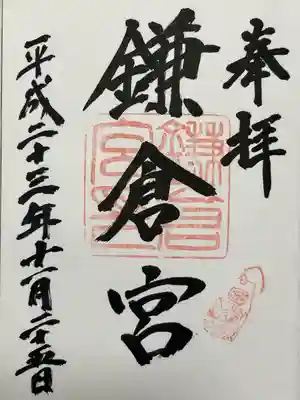 奉拝
鎌倉宮
平成二十三年十一月二十五日